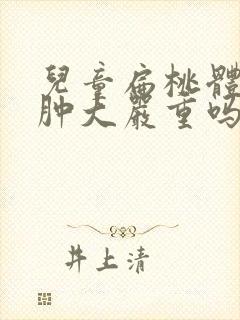 兒童扁桃體
肿大嚴重吗
井上清